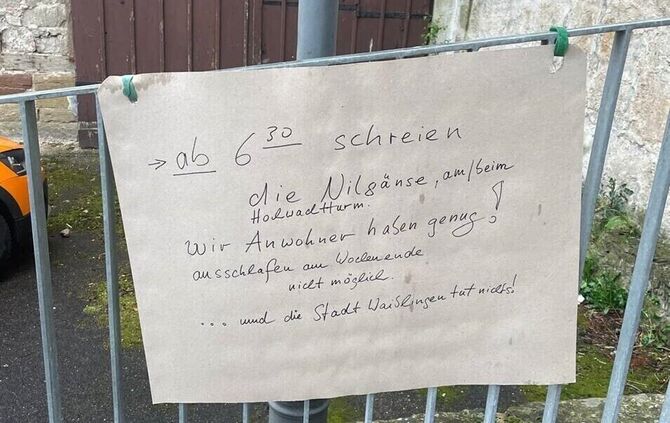 → ab 6³⁰ schreien
die Nilgänse, am/beim
Hochwachtturm.
Wir Anwohner haben genug!
ausschlafen am Wochenende
nicht möglich.
... und die Stadt Waiblingen tut nichts!